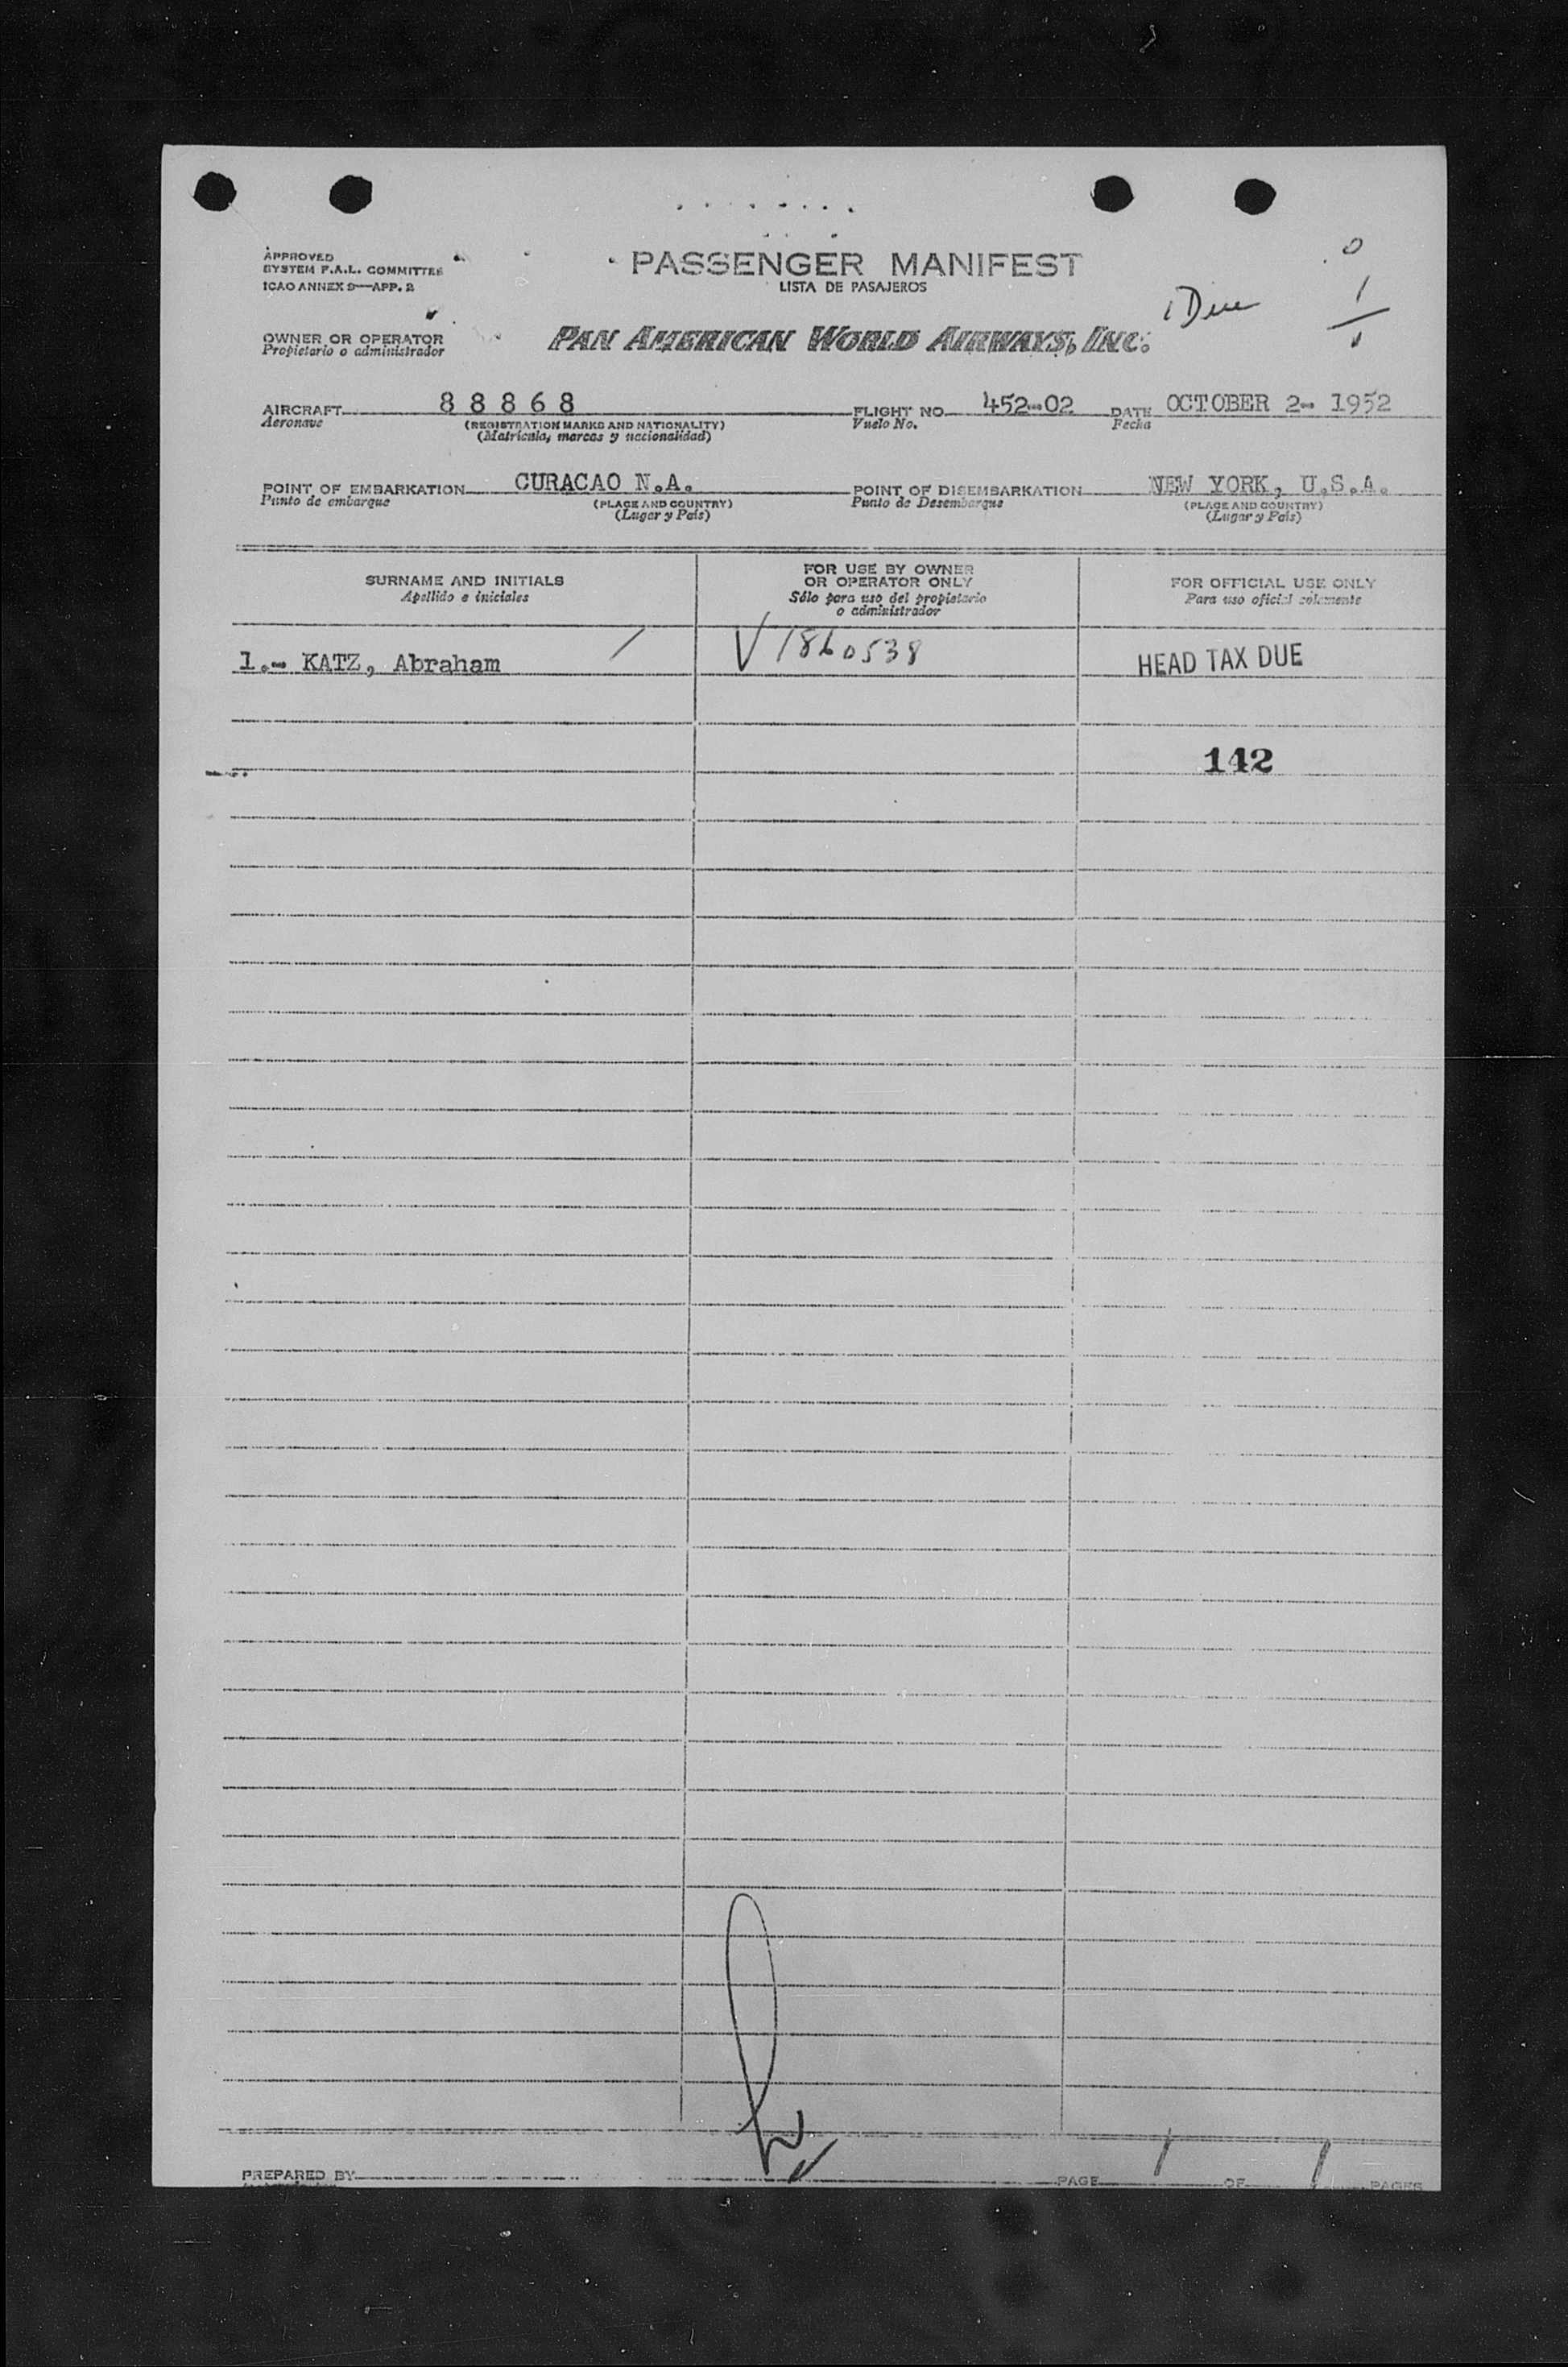 APPROVED
SYSTEM F.A.L. COMMITTEE
ICAO ANNEX 9—APP. 2
PASSENGER MANIFEST
LISTA DE PASAJEROS
0
1
1
1 Due
OWNER OR OPERATOR
Propietario o administrador
PAN AMERICAN WORLD AIRWAYS, INC.
AIRCRAFT 8 8 8 6 8 FLIGHT NO. 452-02 DATE OCTOBER 2- 1952
Aeronave (REGISTRATION MARKS AND NATIONALITY) Vuelo No. Fecha
(Matrícula, marcas y nacionalidad)
POINT OF EMBARKATION CURACAO N.A. POINT OF DISEMBARKATION NEW YORK, U.S.A.
Punto de embarque (PLACE AND COUNTRY) Punto de Desembarque (PLACE AND COUNTRY)
(Lugar y País) (Lugar y País)
SURNAME AND INITIALS
Apellido e iniciales
FOR USE BY OWNER
OR OPERATOR ONLY
Sólo para uso del propietario
o administrador
FOR OFFICIAL USE ONLY
Para uso oficial solamente
1.- KATZ, Abraham / V 1860538 HEAD TAX DUE
142
PREPARED BY PAGE 1 OF 1 PAGES